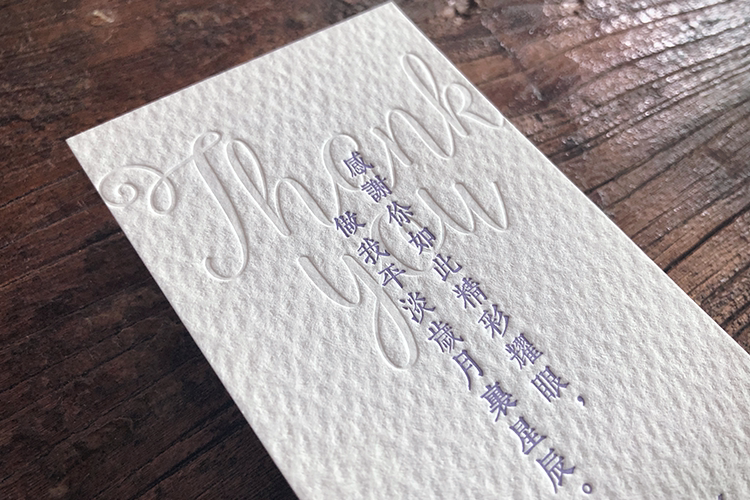 Thank
you
感謝你如此精彩耀眼，
做我平淡歲月裏星辰。